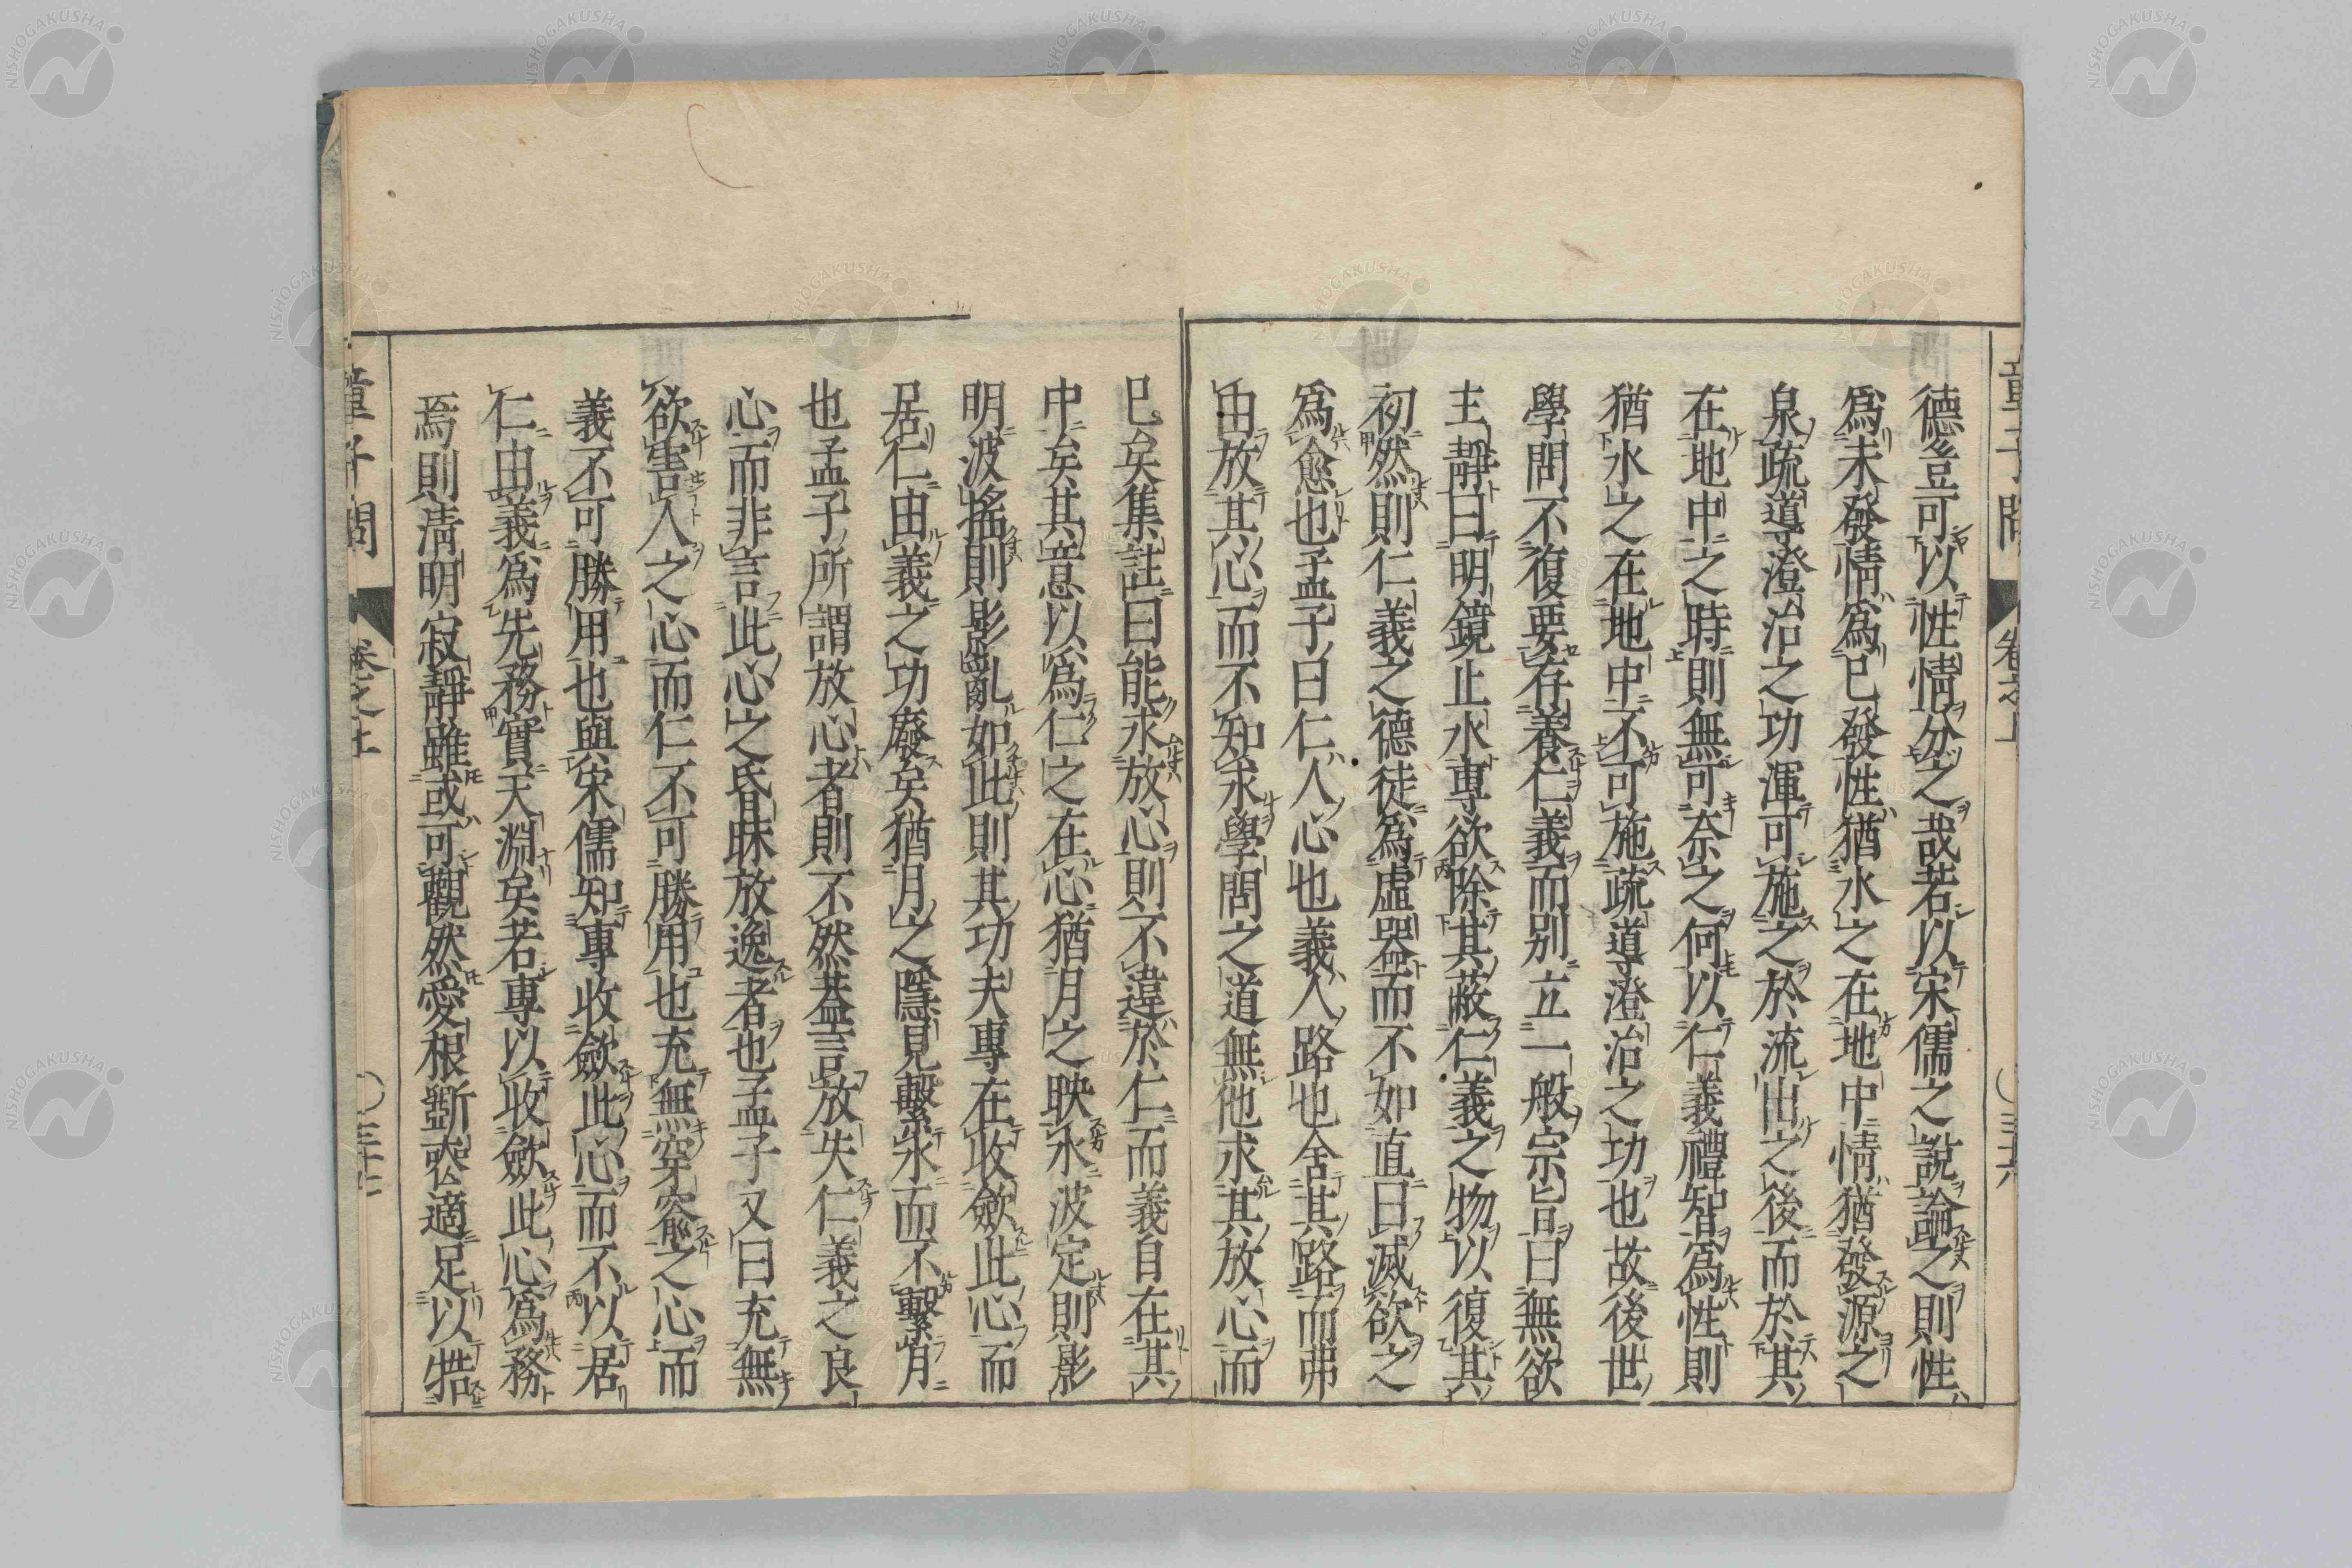 德豈可以性情分之哉若以宋儒之說論之則性
爲未發情爲已發性猶水之在地中情猶發源之
泉疏導澄治之功渾可施之於流出之後而於其
在地中之時則無可奈之何以仁義禮智爲性則
猶水之在地中不可施疏導澄治之功也故後世
學問不復要存養仁義而別立一般宗旨曰無欲
主靜曰明鏡止水專欲除其蔽仁義之物以復其
初然則仁義之德徒爲虛器而不如直曰滅欲之
爲愈也孟子曰仁人心也義人路也舍其路而弗
由放其心而不知求學問之道無他求其放心而
已矣集註曰能求放心則不違於仁而義自在其
中矣其意以爲仁之在心猶月之映水波定則影
明波搖則影亂如此則其功夫專在收斂此心而
居仁由義之功廢矣猶月之隱見繫水而不繫月
也孟子所謂放心者則不然蓋言放失仁義之良
心而非言此心之昏昧放逸者也孟子又曰充無
欲害人之心而仁不可勝用也充無穿窬之心而
義不可勝用也與宋儒知專收斂此心而不以居
仁由義爲先務實天淵矣若專以收斂此心爲務
焉則淸明寂靜雖或可觀然愛根斷喪適足以牿
童子問 卷之上